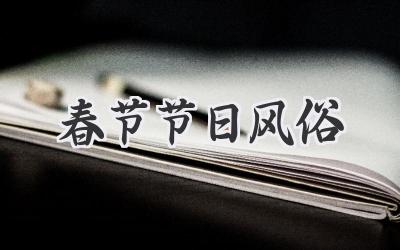 春节节日风俗